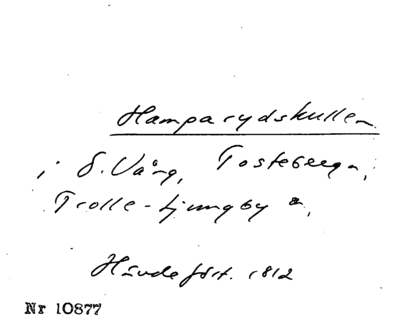 Hamparydskullen
i S. Vång, Tosteberga,
Trolle-Ljungby sn,
Hävdefört. 1812
Nr 10877